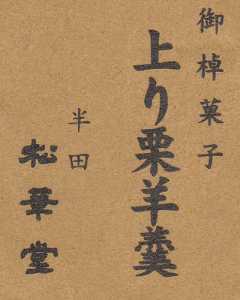 御棹菓子
上り栗羊羹
半田
松華堂